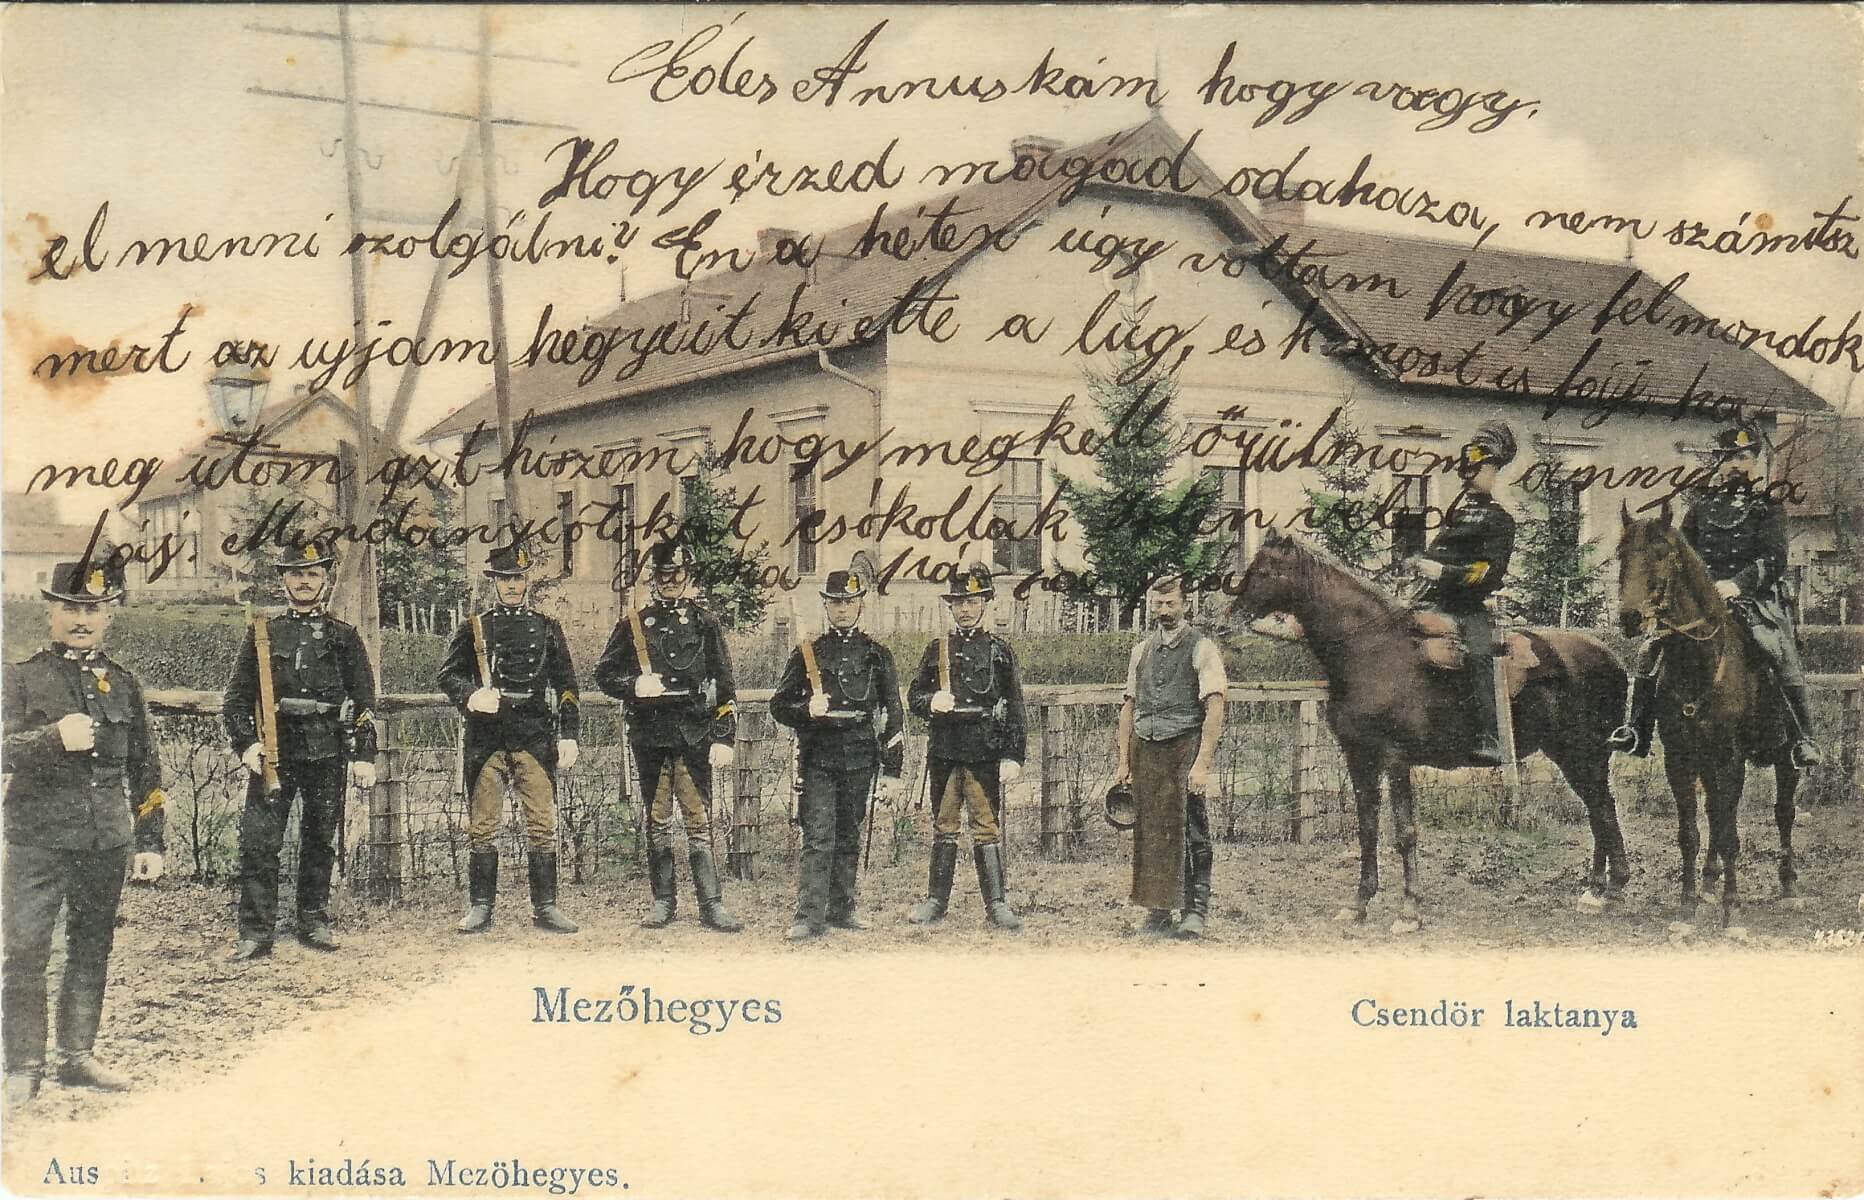 Édes Annuskám hogy vagy.
Hogy érzed magad odahaza, nem számitsz
el menni szolgálni? Én a héten úgy voltam hogy fel mondok
mert az ujjam hegyeit ki ette a lúg, és most is fáj, ha
meg ütöm azt hiszem hogy meg kell őrülnöm annyira
fáj. Mindannyiótokat csókollak
Mezőhegyes
Csendör laktanya
kiadása Mezöhegyes.